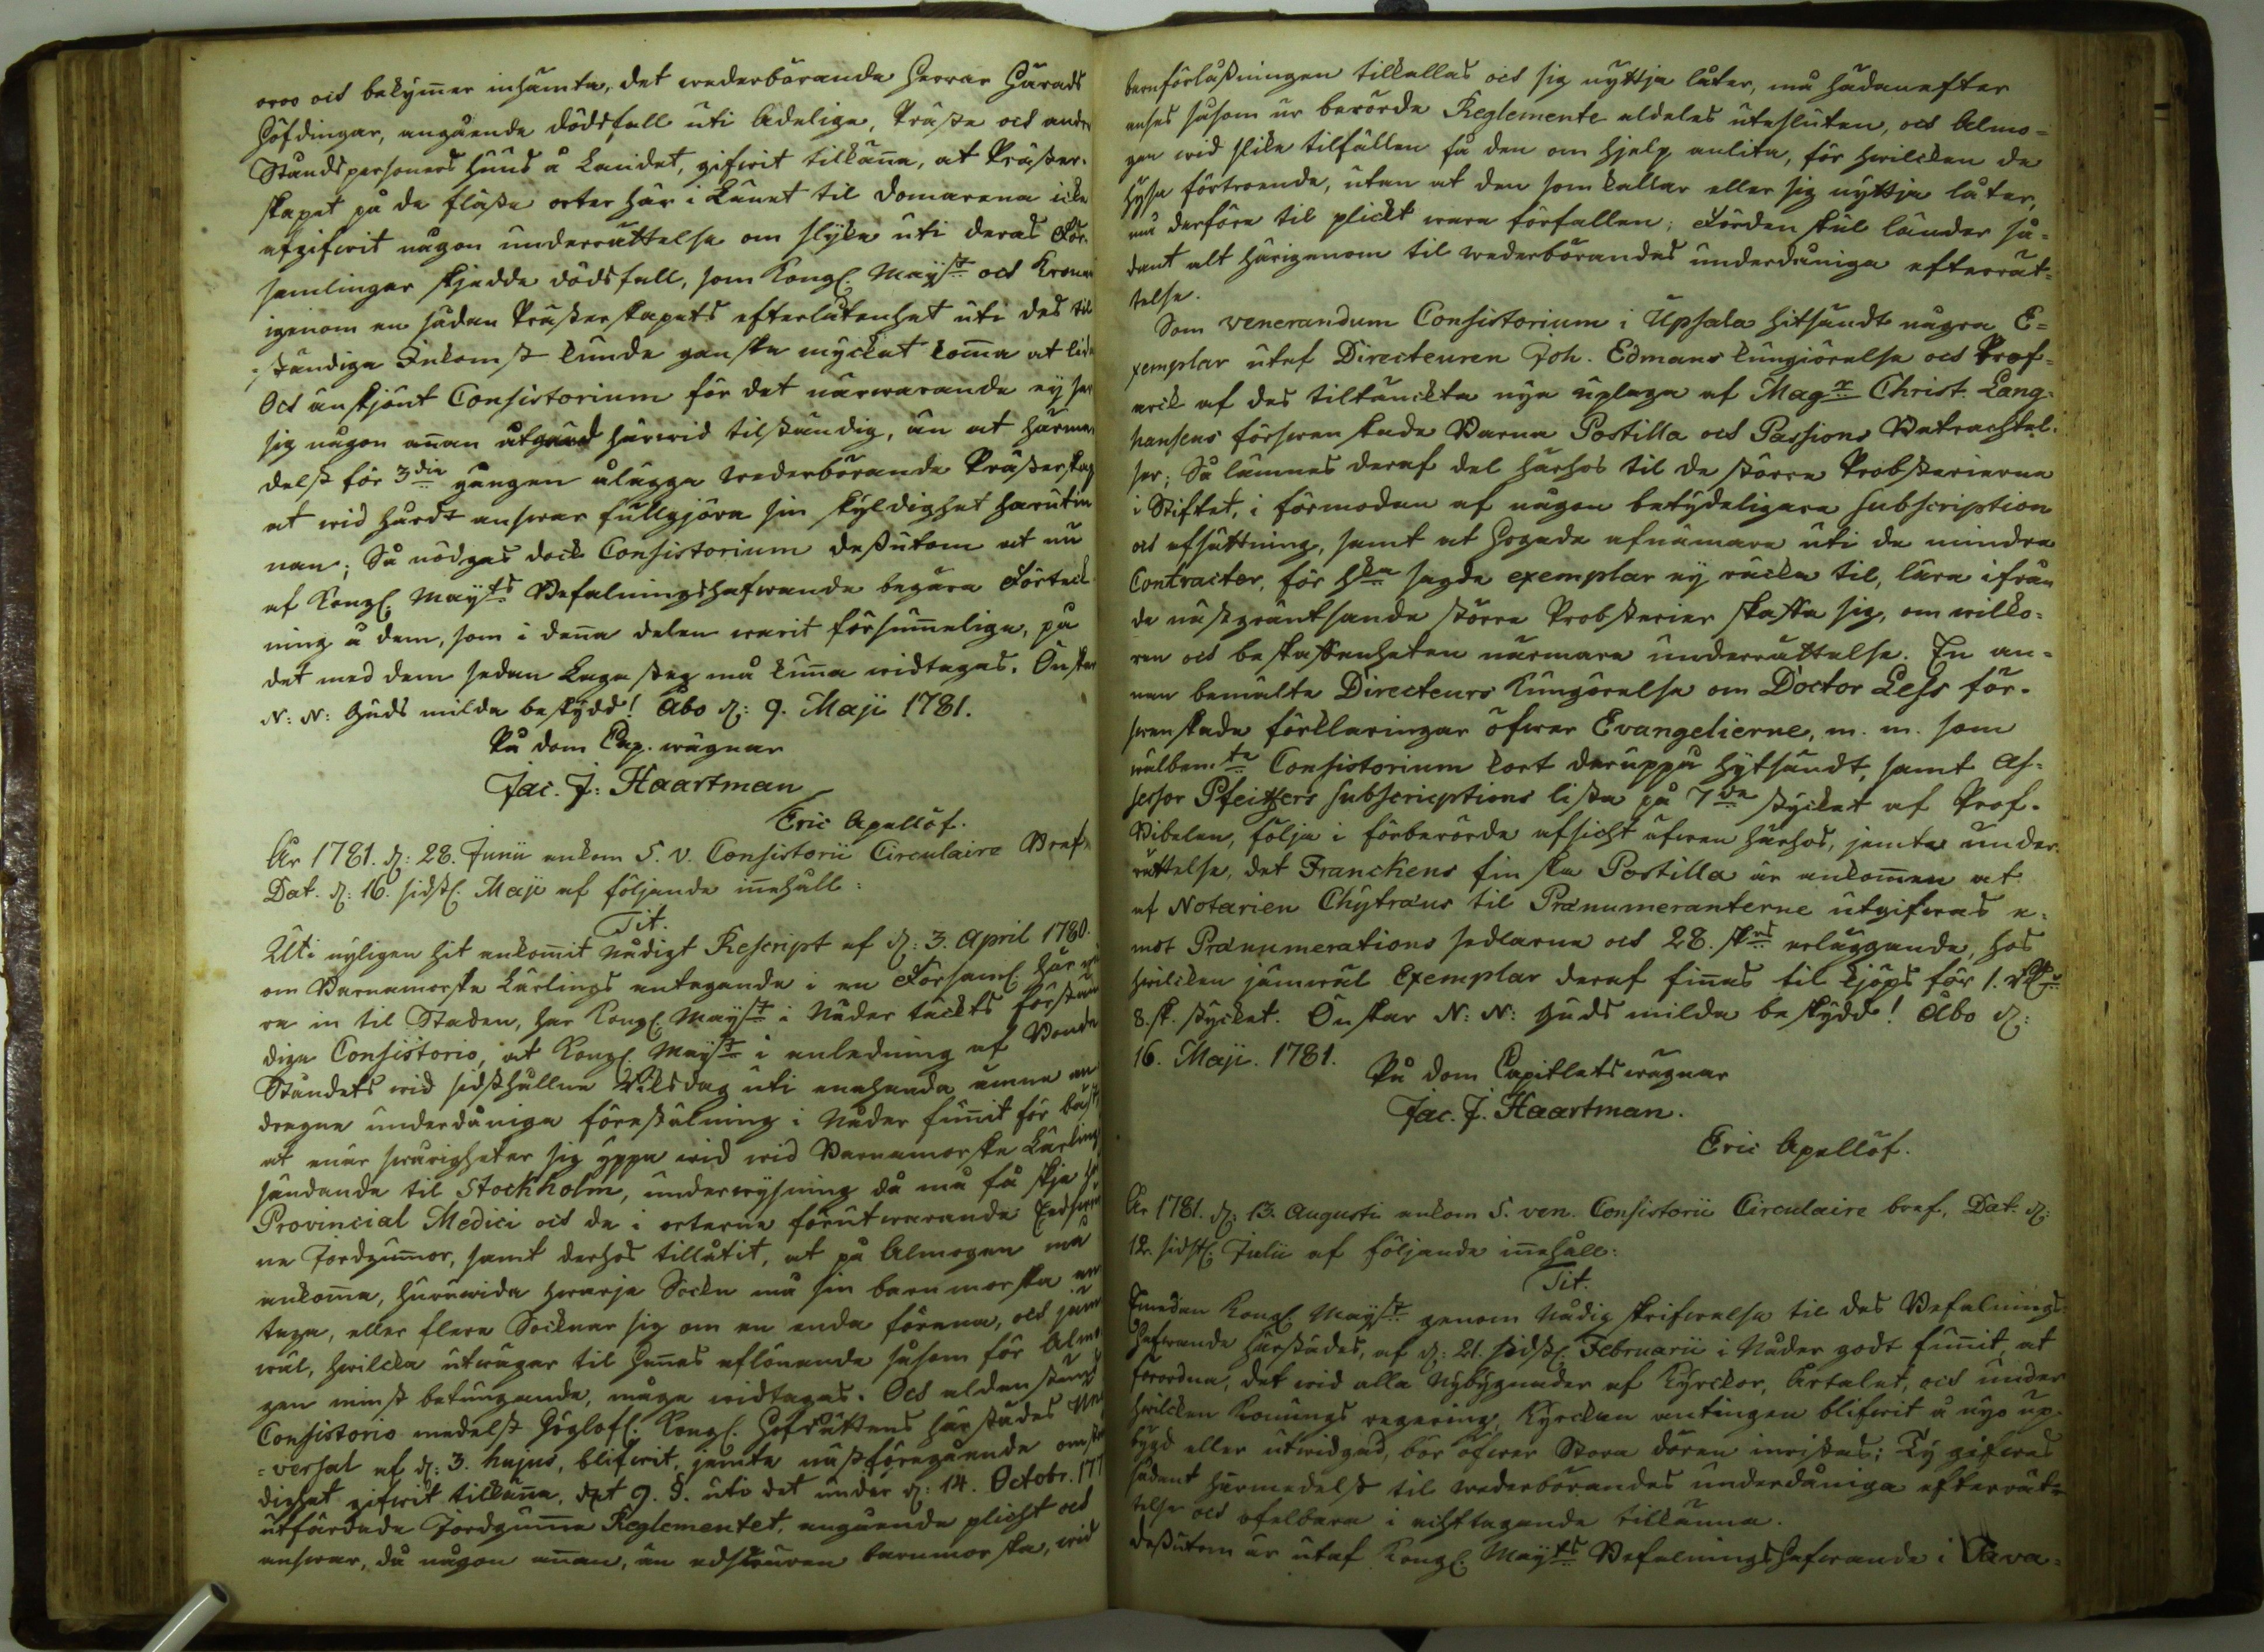 oroo och bekymer inhämta, det wederbörande Herrar Härads
Höfdingar, angående dödsfall uti Adelige, Präste och andre
Ståndspersoners huus å Landet, gifwit tillkäna, at Präster-
skapet på de flästa orter här i Länet til Domarena icke
afgifwit någon underrättelse om slyka uti deras För-
samlingar skjedde dödsfall, som Kongl. Mayst och Kronan
igenom en sådan Prästerskapets efterlåtenhet uti des til
ständiga Inkomst kunde ganska myckat koma at lida
Och änskjönt Consistorium för det närwarande ey ser
sig någon anan utgård härwid tilständig, än at härme-
delst för 3die gången ålägga wederbörande Prästerskap
at wid hårdt answar fullgjöra sin skyldighet härutin
nan; Så nödgas dock Consistorium dessutom at nu
af Kongl. Mayts Befalningshafwande begära Förteck-
ning å dem, som i dena delen warit försumelige, på
det med dem sedan Laga steg må kuna widtagas. Önskar
N: N: Guds milda beskydd! Åbo d: 9. Maji 1781.
På dom Cap. wägnar
Jac. J: Haartman
Eric Apellöf.
År 1781. d: 28. Junii ankom S. V. Consistorii Circulaire Bref
Dat. d: 16. sidstl. Maji af följande inehåll:
Tit.
Uti nyligen hit ankomit Nådigt Rescript af d: 3. April 1780.
om Barnmorske Lärlings antagande i en Församl. här
re in til Staden, har Kongl. Mayst i Nåder täckts förstän
diga Consistorio, at Kongl. Mayst i anledning af Bonde
Ståndets wid sidsthållne Riksdag uti enehanda ämne an
dragne underdåniga föreställning i Nåder funit för bäst
at enär swårigheter sig yppa wid wid Barnmorske Lärling
sändande til Stockholm, underwysning då må få skje
Provincial Medici och de i orterne förutwarande Edswur
ne Jordgumor, samt derhos tillåtit, at på Almogen må
ankoma, huruwida hwarje Sockn må sin barnmorska an
taga, eller flere Socknar sig om en enda förena, och jäm
wäl, hwilcka utwägar til henes aflönande såsom för Almo
gen minst betungande, måge widtagas. Och aldenstund
Consistorio medelst Höglofl. Kongl. Hofrättens härstädes Uni
=versal af d: 3. hujus, blifwit, jämte nästföregående omstän
dighet gifwit tillkäna, det 9. §. uti det under d: 14. Octobr. 177
utfärdade Jordguma Reglementet, angående plicht och
answar, då någon anan, än edswuren barnmorska, wid
barnförlossningen tillkallas och sig nyttja låter, må hädanefter
anses såsom ur berörde Reglemente aldeles utesluten, och Almo=
gen wid slike tilfällen få den om hjelp anlita, för hwilcken de
hysa förtroende, utan at den som kallar eller sig nyttja låter,
må derföre til plickt wara förfallen; Förden skul länder så=
dant alt härigenom til wederbörandes underdåniga efterrät=
telse.
Som Venerandum Consistorium i Upsala hitsändt några E=
xemplar utaf Directeuren Joh. Edmans kungiörelse och Prof=
arck af des tiltänckte nya uplaga af Magr Christ. Lang-
hansens förswenskade Barna Postilla och Passions Betrachtel-
ser; Så lämnes deraf del härhos til de större Probsterierne
i Stiftet, i förmodan af någon betydeligare Subscription
och afsättning, samt at hogade afnämare uti de mindre
Contracter, för hka sagde exemplar ey räcka til, lära ifrån
de nästgräntsande större Probsterier skaffa sig, om wilko=
ren och beskaffenheten närmare underrättelse. En an=
nan bemälte Directeurs Kungörelse om Doctor Less för-
swenskade förklaringar öfwer Evangelierne, m. m. som
wälbemte Consistorium kort deruppå hytsändt, samt As=
sessor Pfeiffers Subscriptions lista på 7de stycket af Prof-
Bibelen, följa i förberörde afsicht äfwen härhos, jemte under-
rättelse, det Franckens finska Postilla är ankomen at
af Notarien Chytræus til Prænumeranterne utgifwas e=
mot Prænumerations sedlarne och 28. skrs erläggande, hos
hwilcken jämwäl Exemplar deraf finnes til kjöps för 1. Rdr
8. sk. stycket. Önskar N: N: Guds milda beskydd! Åbo d:
16. Maji. 1781.
På dom Capitlets wägnar
Jac. J. Haartman.
Eric Apellöf.
År 1781. d: 13. Augusti ankom S. Ven. Consistorii Circulaire bref, Dat. d:
12. sidstl. Julii af följande inehåll:
Tit.
Emedan Kongl. Mayst genom Nådig skrifwelse til des Befalnings=
hafwande härstädes, af d: 21. sidstl. Februarii i Nåder godt funit, at
förordna, det wid alla Nybygnader af Kyrckor, Årtalet, och under
hwilcken Konungs regering, Kyrckan antingen blifwit å nyo up-
bygd eller utwidgad, bör öfwer Stora dören inristas; Ty gifwes
sådant härmedelst til wederbörandes underdåniga efterrät=
telse och ofelbara i achttagande tillkänna.
Dessutom är utaf Kongl. Mayts Befalningshafwande i Tava=